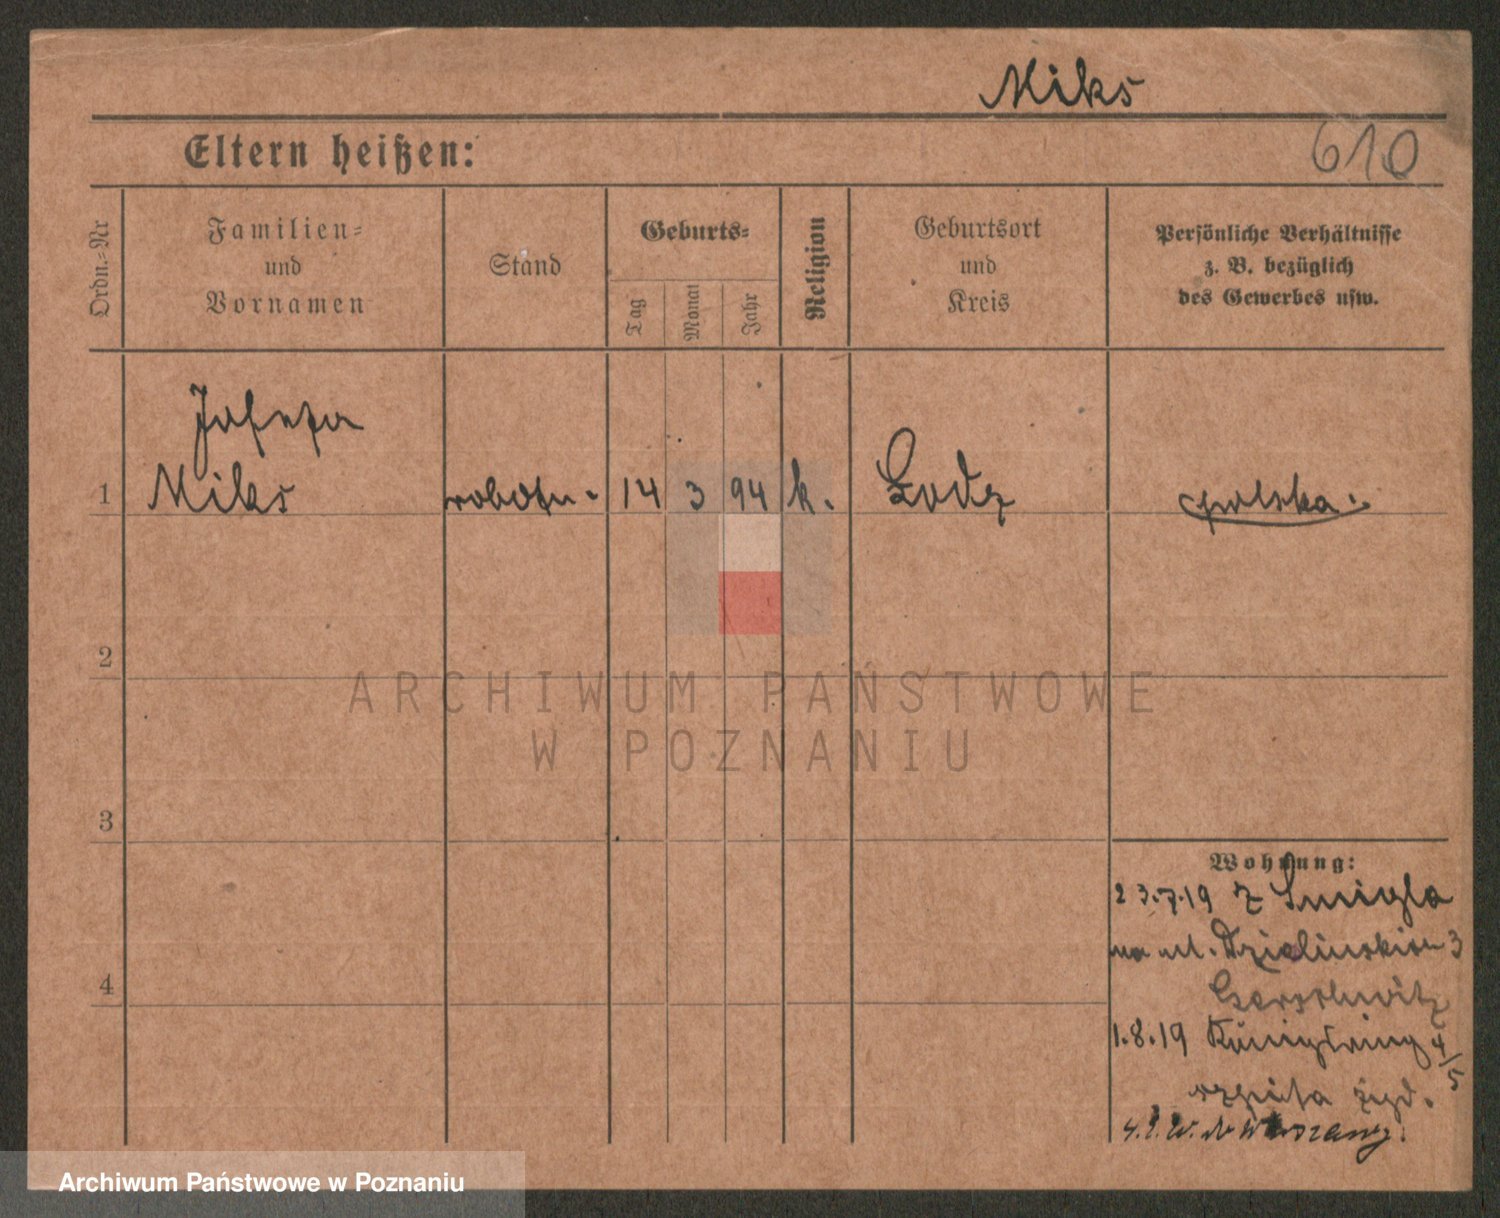 Miks
610
Eltern heißen:
Ordn.-Nr
Familien-
und
Vornamen
Stand
Geburts-
Tag
Monat
Jahr
Religion
Geburtsort
und
Kreis
Persönliche Verhältnisse
z. B. bezüglich
des Gewerbes usw.
Josefa
1 Miks robotn. 14 3 94 k. Lodz polska.
2
ARCHIWUM PAŃSTWOWE
W POZNANIU
3
Wohnung:
23.7.19 z Śmigla
na ul. 3
4
1.8.19 Königsring 4/5
żyd.
do Warszawy.
Archiwum Państwowe w Poznaniu